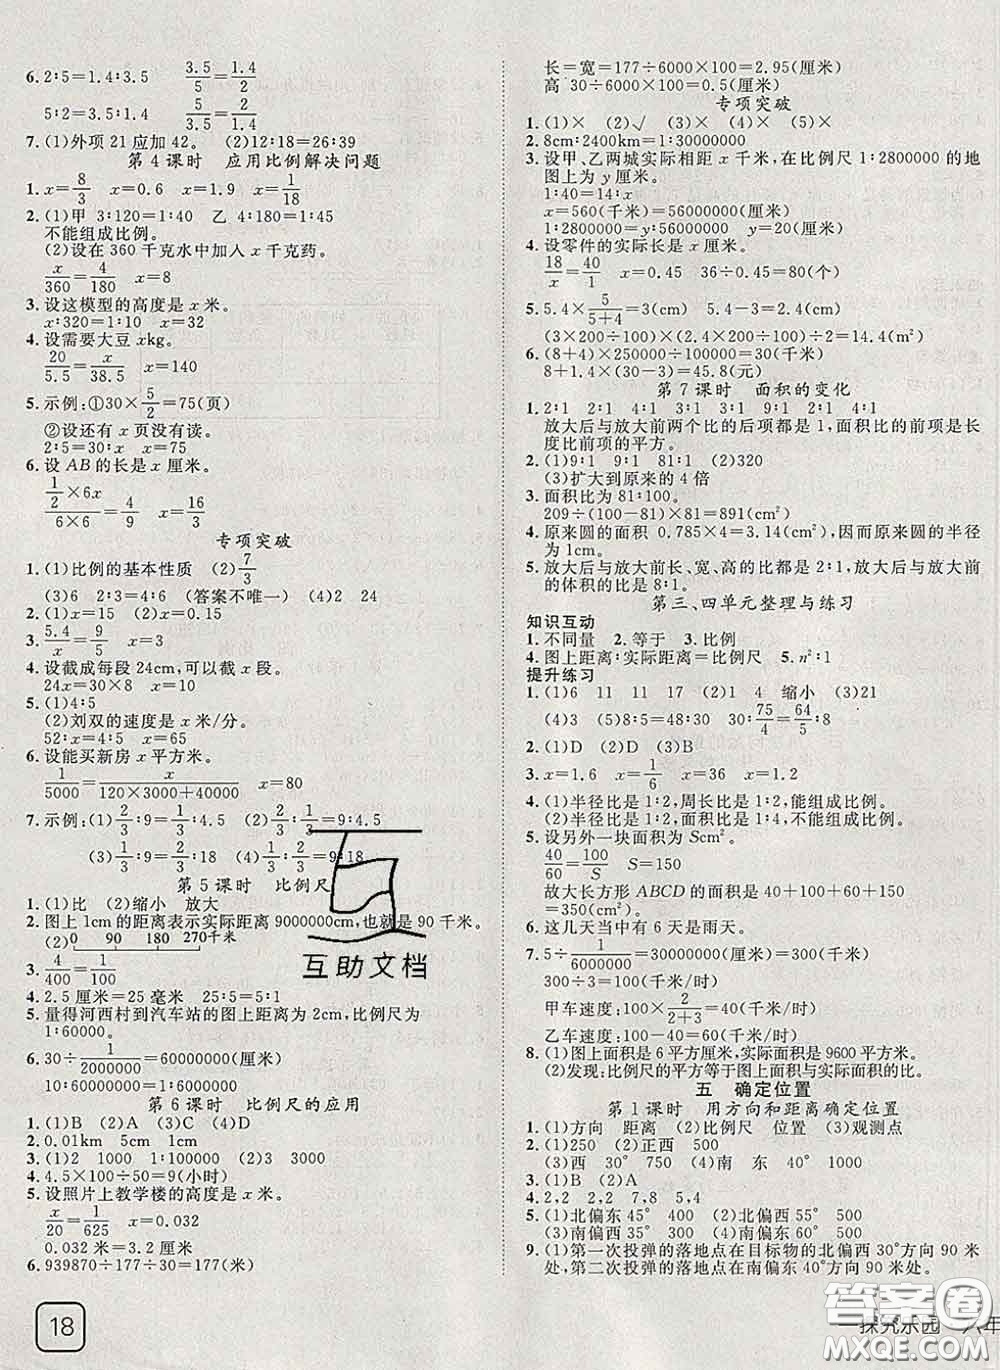 6. 2∶5=1.4∶3.5　3.5/5=1.4/2
5∶2=3.5∶1.4　5/3.5=2/1.4
7. (1)外项 21 应加 42。　(2)12∶18=26∶39
第 4 课时　应用比例解决问题
1. x=8/3　x=0.6　x=1.9　x=1/18
2. (1)甲 3∶120=1∶40　乙 4∶180=1∶45
不能组成比例。
(2)设在 360 千克水中加入 x 千克药。
x/360=4/180　x=8
3. 设这模型的高度是 x 米。
x∶320=1∶10　x=32
4. 设需要大豆 xkg。
20/5.5=x/38.5　x=140
5. 示例:①30×5/2=75(页)
②设还有 x 页没有读。
2∶5=30∶x　x=75
6. 设 AB 的长是 x 厘米。
(1/2×6x)/(6×6)=4/9　x=16/3
专项突破
1. (1)比例的基本性质　(2)7/3
(3)6　2∶3=4∶6　(答案不唯一)　(4)2　24
2. (1)x=15　(2)x=0.15
3. 5.4/x=9/5　x=3
4. 设截成每段 24cm,可以截 x 段。
24x=30×8　x=10
5. (1)4∶5
(2)刘双的速度是 x 米/分。
52∶x=4∶5　x=65
6. 设能买新房 x 平方米。
1/5000=x/(120×3000+40000)　x=80
7. 示例:(1)2/3∶9=1/3∶4.5　(2)2/3∶1/3=9∶4.5
(3)1/3∶9=2/3∶18　(4)1/3∶2/3=9∶18
第 5 课时　比例尺
1. (1)比　(2)缩小　放大
2. 图上 1cm 的距离表示实际距离 9000000cm,也就是 90 千米。
(2)0　90　180　270千米
3. 4/400=1/100
4. 2.5 厘米=25 毫米　25∶5=5∶1
5. 量得河西村到汽车站的图上距离为 2cm,比例尺为
1∶60000。
6. 30÷1/2000000=60000000(厘米)
10∶60000000=1∶6000000
第 6 课时　比例尺的应用
1. (1)B　(2)A　(3)C　(4)D
2. 0.01km　5cm　1cm
3. (1)2　1000　1∶100000　(2)3　3000
4. 4.5×100÷50=9(小时)
5. 设照片上教学楼的高度是 x 米。
x/20=1/625　x=0.032
0.032 米=3.2 厘米
6. 939870÷177÷30=177(厘米)
18
长=宽=177÷6000×100=2.95(厘米)
高 30÷6000×100=0.5(厘米)
专项突破
1. (1)×　(2)√　(3)×　(4)×　(5)×
2. 8cm∶2400km=1∶30000000
3. 设甲、乙两城实际相距 x 千米,在比例尺 1∶2800000 的地
图上为 y 厘米。
1∶40=14∶x
x=560(千米)=56000000(厘米)
1∶2800000=y∶56000000　y=20(厘米)
4. 设零件的实际长是 x 厘米。
18/x=40/1　x=0.45　36÷0.45=80(个)
5. 5.4×5/(5+4)=3(cm)　5.4-3=2.4(cm)
(3×200÷100)×(2.4×200÷100)÷2=14.4(cm²)
6. (8+4)×250000÷100000=30(千米)
7+1.6×(30-3)=45.8(元)
第 7 课时　面积的变化
1. 2∶1　4∶1　3∶1　9∶1　2∶1　4∶1
放大后与放大前两个比的后项都是 1,面积比的前项是长
度比前项的平方。
2. (1)9∶1　9∶1　81∶1　(2)320
(3)扩大到原来的 4 倍
3. 面积比为 81∶100。
209÷(100-81)×81=891(cm²)
4. 原来圆的面积 0.785×4=3.14(cm²),因而原来圆的半径
为 1cm。
5. 放大后与放大前长、宽、高的比都是 2∶1,放大后与放大前
的体积的比是 8∶1。
第三、四单元整理与练习
知识互动
1. 不同量　2. 等于　3. 比例
4. 图上距离∶实际距离=比例尺　5. n²∶1
提升练习
1. (1)6　11　11　17　(2)1　4　缩小　(3)21
(4)3　(5)8∶5=48∶30　30∶75/4=64/5∶8
2. (1)D　(2)D　(3)B
3. x=1.6　x=1/6　x=36　x=1.2
4. (1)半径比是 1∶2,周长比是 1∶2,能组成比例。
(2)半径比是 1∶2,面积比是 1∶4,不能组成比例。
5. 设另外一块面积为 Scm²。
40/60=100/S　S=150
故大长方形 ABCD 的面积是 40+100+60+150
=350(cm²)
6. 这几天当中有 6 天是雨天。
7. 5÷1/6000000=30000000(厘米)=300(千米)
300÷3=100(千米/时)
甲车速度:100×2/(2+3)=40(千米/时)
乙车速度:100-40=60(千米/时)
8. (1)图上面积是 6 平方厘米,实际面积是 9600 平方米。
(2)发现:比例尺的平方等于图上面积与实际面积的比。
五　确定位置
第 1 课时　用方向和距离确定位置
1. (1)方向　距离　(2)比例尺　位置　(3)观测点
2. (1)北　250　(2)正西　500
(3)西　30°　750　(4)南　东　40°　500
3. (1)B　(2)A
4. 2,2　2,4　7,8　5,4
5. (1)北偏东 45°　400　(2)北偏西 55°　500
(3)南偏西 30°　300　(4)南偏东 35°　500
9. (1)第一次投弹的落地点在目标物的北偏西 30°方向 90 米
处,第二次投弹的落地点在南偏东 40°方向 90 米处。
探究乐园　六年
互助文档
答案圈
MXQE.COM